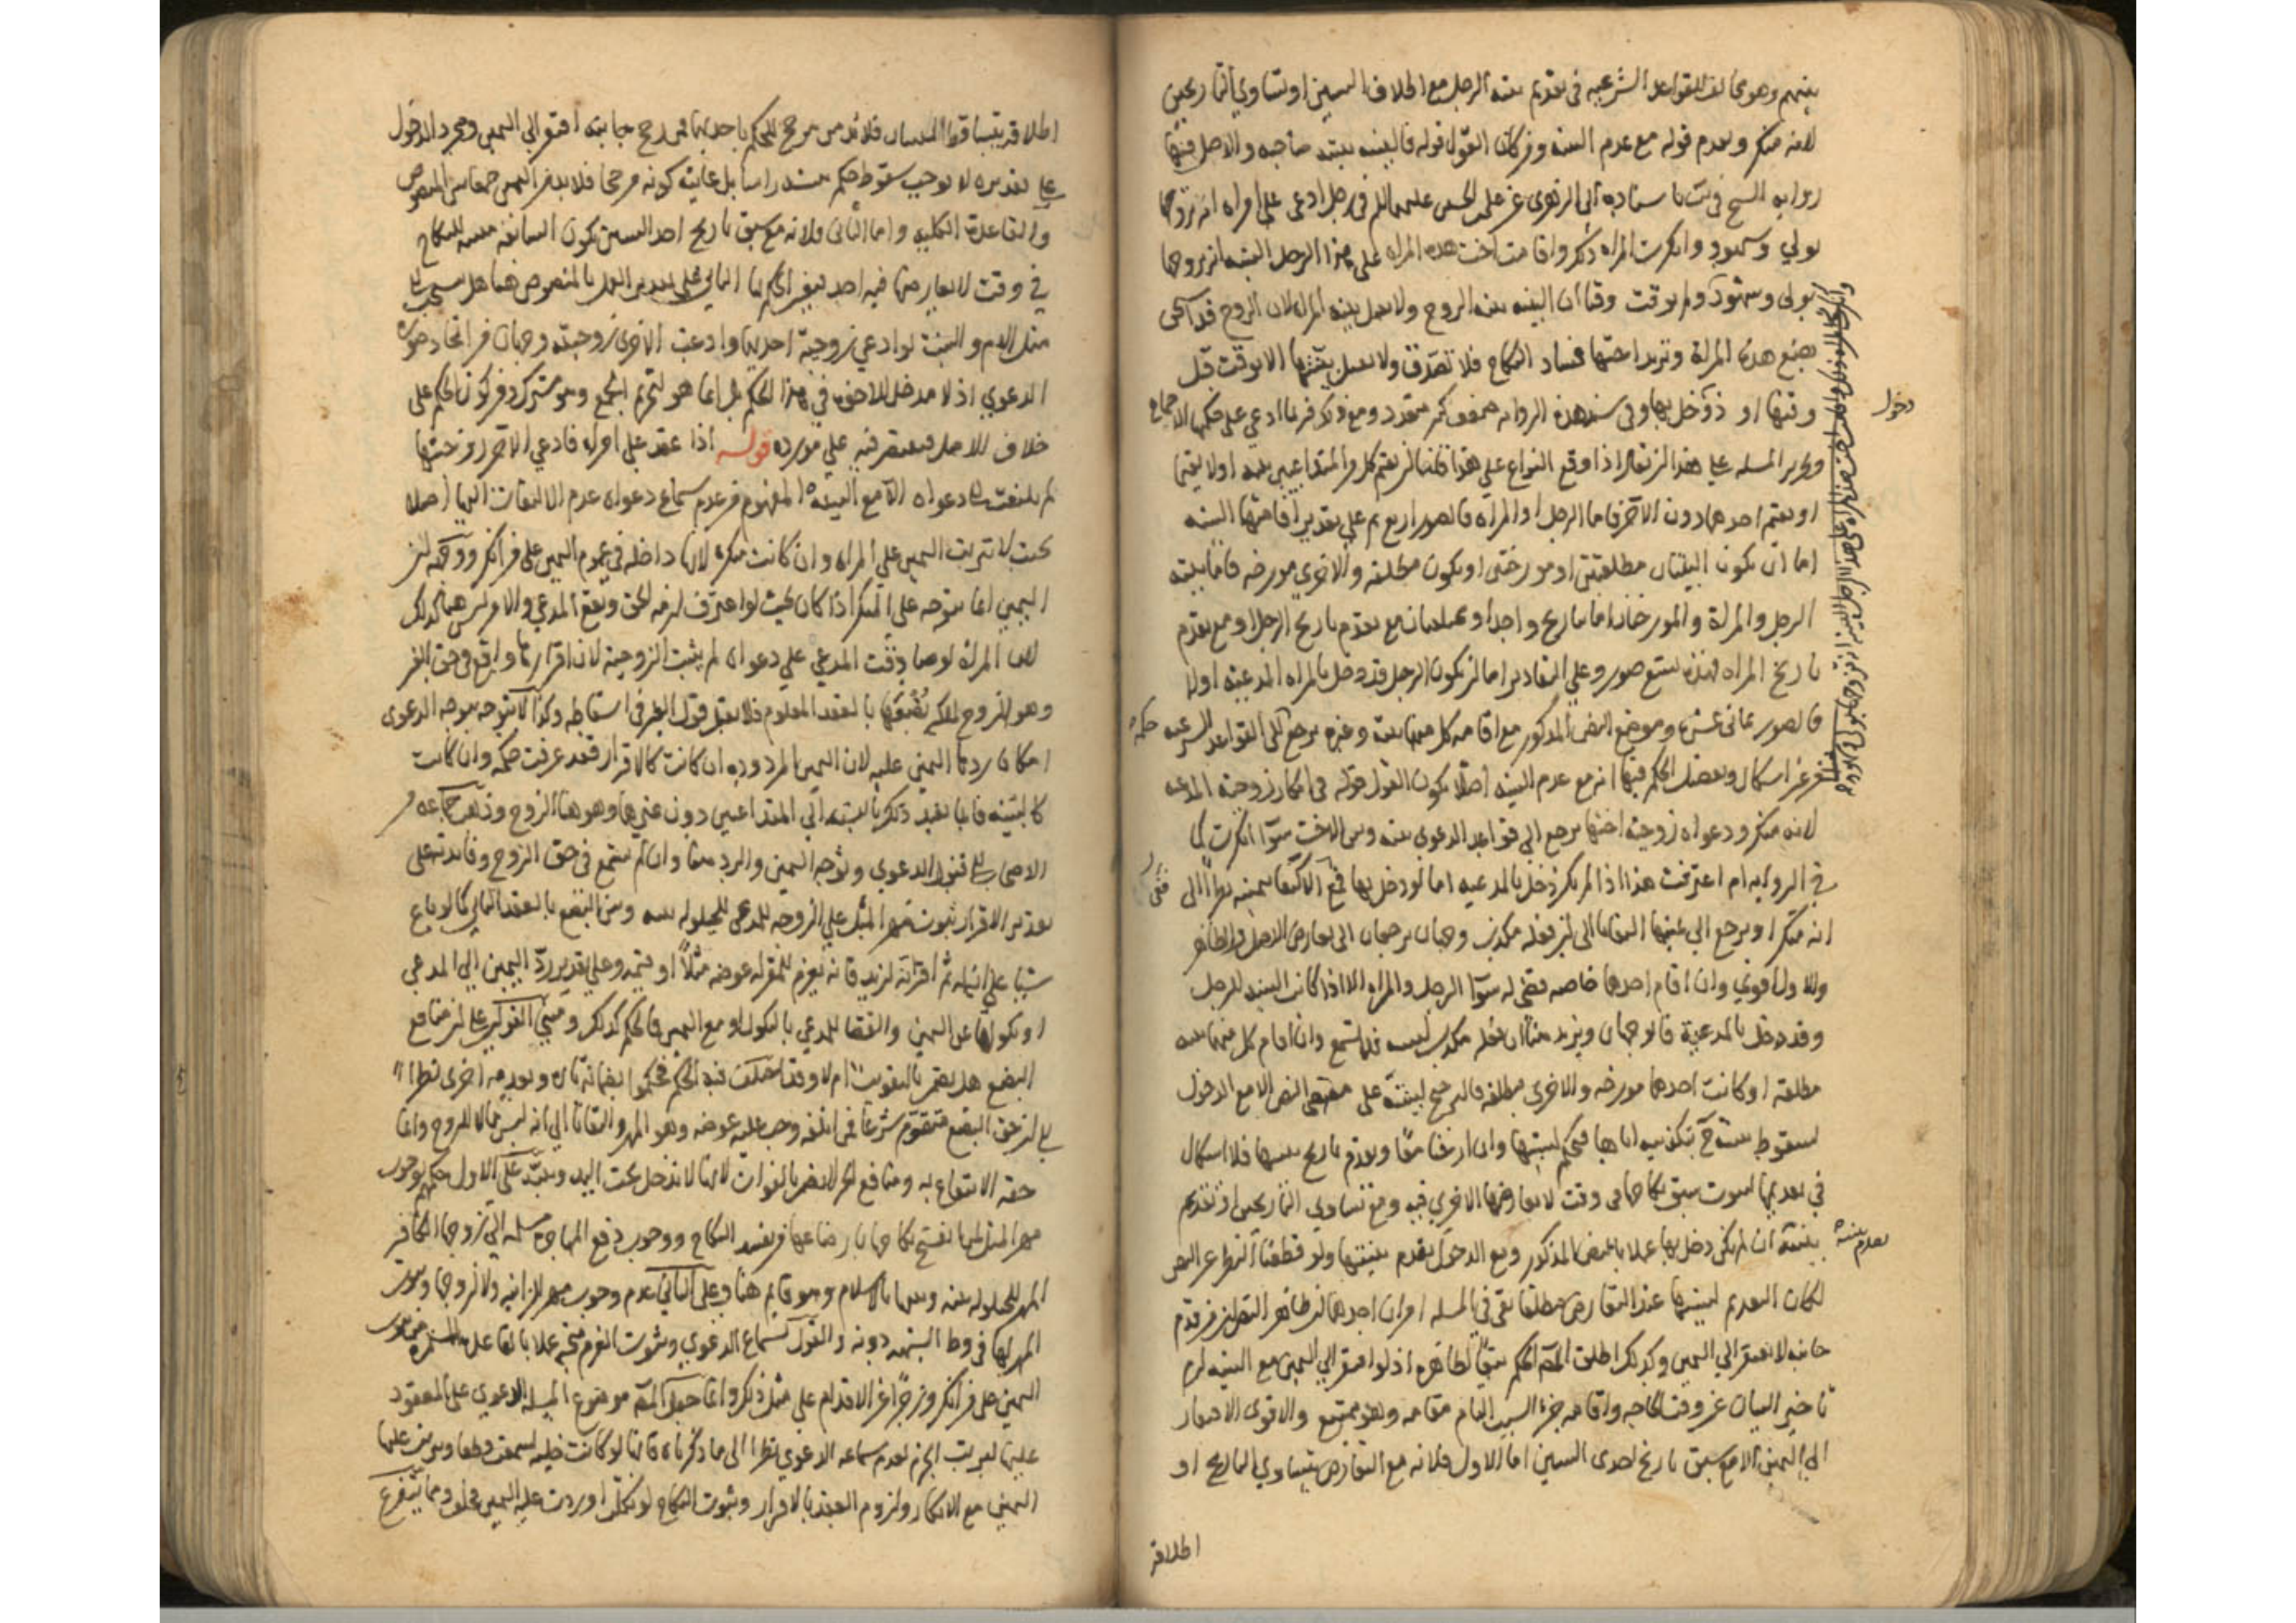 بينهم وهو مخالف للقواعد الشرعية في تقديم بينة الرجل مع اطلاق البينتين او تساوي التاريخين
لانه منكر ويقدم قوله مع عدم البينة ومن كان القول قوله فالبينة بينة صاحبه والاصل فيها
رواية في باسناده الى الزهري عن علي بن الحسين عليهما السلم في رجل ادعى على امراة انه تزوجها
بولي وشهود وانكرت المراة ذلك واقامت اخت هذه المراة على هذا الرجل البينة انه تزوجها
بولي وشهود ولم يوقت وقتا ان البينة بينة الزوج ولا يقبل بينة المراة لان الزوج قد استحق
بضع هذه المراة وتريد اختها فساد النكاح فلا تصدق ولا يقبل بينتها الا بوقت قبل
وقتها او دخول بها وفي سند هذه الرواية ضعف ومع ذلك فربما ادعي على حكمها الاجماع
وتحرير المسئلة على هذا انه اذا وقع النزاع على هذا فاما ان يقيم كل من المتداعيين بينة او لا يقيما
او يقيم احدهما دون الاخر فاما الرجل او المراة فالصور اربع ثم على تقدير اقامتهما البينة
اما ان تكون البينتان مطلقتين او مورختين او تكون مطلقة والاخرى مورخة فاما بينة
الرجل او المراة والمورختان اما بتاريخ واحد او مختلفتان مع تقدم تاريخ الرجل او مع تقدم
تاريخ المراة فهذه تسع صور وعلى التقادير اما ان يكون الرجل قد دخل بالمراة المدعية او لا
فالصور ثماني عشرة وموضع النص المذكور مع اقامة كل منهما بينة وغيره يرجع الى القواعد الشرعية
اشكال وتفصيل الحكم فيها انه مع عدم البينة اصلا يكون القول قوله في انكار زوجية المدعية
لانه منكر ودعواه زوجية اختها يرجع الى قواعد الدعوى بينه وبين الاخت سواء انكرت كما
في الرواية ام اعترفت هذا اذا لم يكن دخل بالمدعية اما لو دخل بها ففي الاكتفاء بيمينه نظرا الى
انه منكر او يرجع الى يمينها التفاتا الى ان فعله مكذب وجهان يرجعان الى تعارض الاصل والظاهر
والاول اقوى وان اقام احدهما خاصة قضي له سواء الرجل والمراة الا اذا كانت البينة للرجل
وقد دخل بالمدعية فالوجهان ويزيد هنا ان فعله مكذب لبينته فلا تسمع وان اقام كل منهما بينة
مطلقة او كانت احدهما مورخة والاخرى مطلقة فالترجيح لبينته على مقتضى النص الا مع الدخول
لسقوط بينته ح بتكذيبه اياها فيحكم لبينتها وان ارختا معا وتقدم تاريخ بينتها فلا اشكال
في تقديمها لثبوت سبق نكاحها في وقت لا يعارضها الاخرى فيه ومع تساوي التاريخين او تقديم
بينته ان لم يكن دخل بها عملا بالنص المذكور ومع الدخول يقدم بينتها ولو قطعنا النظر عن النص
لكان التقديم لبينتها عند التعارض مطلقا بقي في المسئلة امران احدهما ان ظاهر النص ان من قدم
جانبه لا يفتقر الى اليمين وكذلك اطلق الحكم تبعا لظاهره اذ لو افتقر الى اليمين مع البينة لزم
تاخير البيان عن وقت الحاجة واقامة جزء السبب التام مقامه وهو ممتنع والاقوى الافتقار
الى اليمين الا مع سبق تاريخ احدى البينتين اما الاول فلانه مع التعارض بتساوي التاريخ او
اطلاقه
دخول
حكمه
تقدم بينته
اطلاقه يتساقط البينتان فلا بد من مرجح للحكم باحديهما فمن رجح جانبه افتقر الى اليمين ومجرد الدخول
على تقديره لا يوجب سقوط حكم بينته راسا بل غايته كونه مرجحا فلا بد من اليمين جمعا بين المنصوص
والقاعدة الكلية واما الثاني فلانه مع سبق تاريخ احد البينتين تكون السابقة مثبتة للنكاح
في وقت لا يعارضها فيه احد فيتعين الحكم بها الثاني على تقدير العمل بالمنصوص هنا هل ينسحب الى
مثل الام والبنت لو ادعي زوجية احديهما وادعت الاخرى زوجيته وجهان من اتحاد صورة
الدعوى اذ لا مدخل للاخت في هذا الحكم بل انما هو لتحريم الجمع وهو مشترك ومن كون الحكم على
خلاف الاصل فيقتصر فيه على مورده قوله اذا عقد على امراة فادعى الاخر زوجيتها
لم يلتفت الى دعواه الا مع البينة المفهوم من عدم سماع دعواه عدم الالتفات اليها اصلا
بحيث لا يترتب اليمين على المراة وان كانت منكرة لانها داخلة في عموم اليمين على من انكر ووجهه ان
اليمين انما يتوجه على المنكر اذا كان بحيث لو اعترف لزمه الحق ونفع المدعي والامر ليس هنا كذلك
لان المراة لو صادقت المدعي على دعواه لم يثبت الزوجية لان اقرارها واقع في حق الغير
وهو الزوج لملكه بضعها بالعقد المعلوم فلا يقبل قول الغير في اسقاطه وكذا لا يتوجه بوجه الدعوى
امكان ردها اليمين عليه لان اليمين المردودة ان كانت كالاقرار فقد عرفت حكمه وان كانت
كالبينة فانما يفيد ذلك بالنسبة الى المتداعيين دون غيرهما وهو هنا الزوج وذهب جماعة من
الاصحاب الى قبول الدعوى وتوجه اليمين والرد هنا وان لم يسمع في حق الزوج وفايدته على
تقدير الاقرار ثبوت مهر المثل على الزوجة للمدعي للحيلولة بينه وبين البضع بالعقد الثاني كما لو باع
شيئا على انسان ثم اقر به لزيد فانه يغرم للمقر له عوضه مثلا او قيمة وعلى تقدير رد اليمين الى المدعي
او نكولها عن اليمين والقضاء للمدعي بالنكول او مع اليمين فالحكم كذلك ومبنى القولين على ان منافع
البضع هل يضمن بالتفويت ام لا وقد اختلف فيه الحكم فحكموا بضمانه تارة وبعدمه اخرى نظرا
الى ان حق البضع متقوم شرعا فمن اتلفه وجب عليه عوضه وهو المهر والتفاتا الى انه ليس مالا للزوج وانما
حقه الانتفاع به ومنافع الحر لا يضمن بالفوات لانها لا تدخل تحت اليد وينبه على الاول حكمهم بوجوب
مهر المثل لمن انفسخ نكاحها بارضاعها من يفسد النكاح ووجوب دفع المهاجرة مسلمة الى زوجها الكافر
المهر للحيلولة بينه وبينها بالاسلام وهو قايم هنا وعلى الثاني عدم وجوب مهر للزانية ولا لزوجها وثبوت
المهر لها في وطء الشبهة دونه والقول بسماع الدعوى وثبوت الغرم متجه عملا بالقاعدة
اليمين على من انكر وزجرا عن الاقدام على مثل ذلك وانما جعل موضوع المسئلة الدعوى على المعقود
عليها ليترتب الجزم بعدم سماعه الدعوى نظرا الى ما ذكرناه فانها لو كانت خلية لسمعت قطعا وترتب عليها
اليمين مع الانكار ولزوم العقد بالاقرار وثبوت النكاح لو نكلت او ردت عليه اليمين فحلف ومما يتفرع